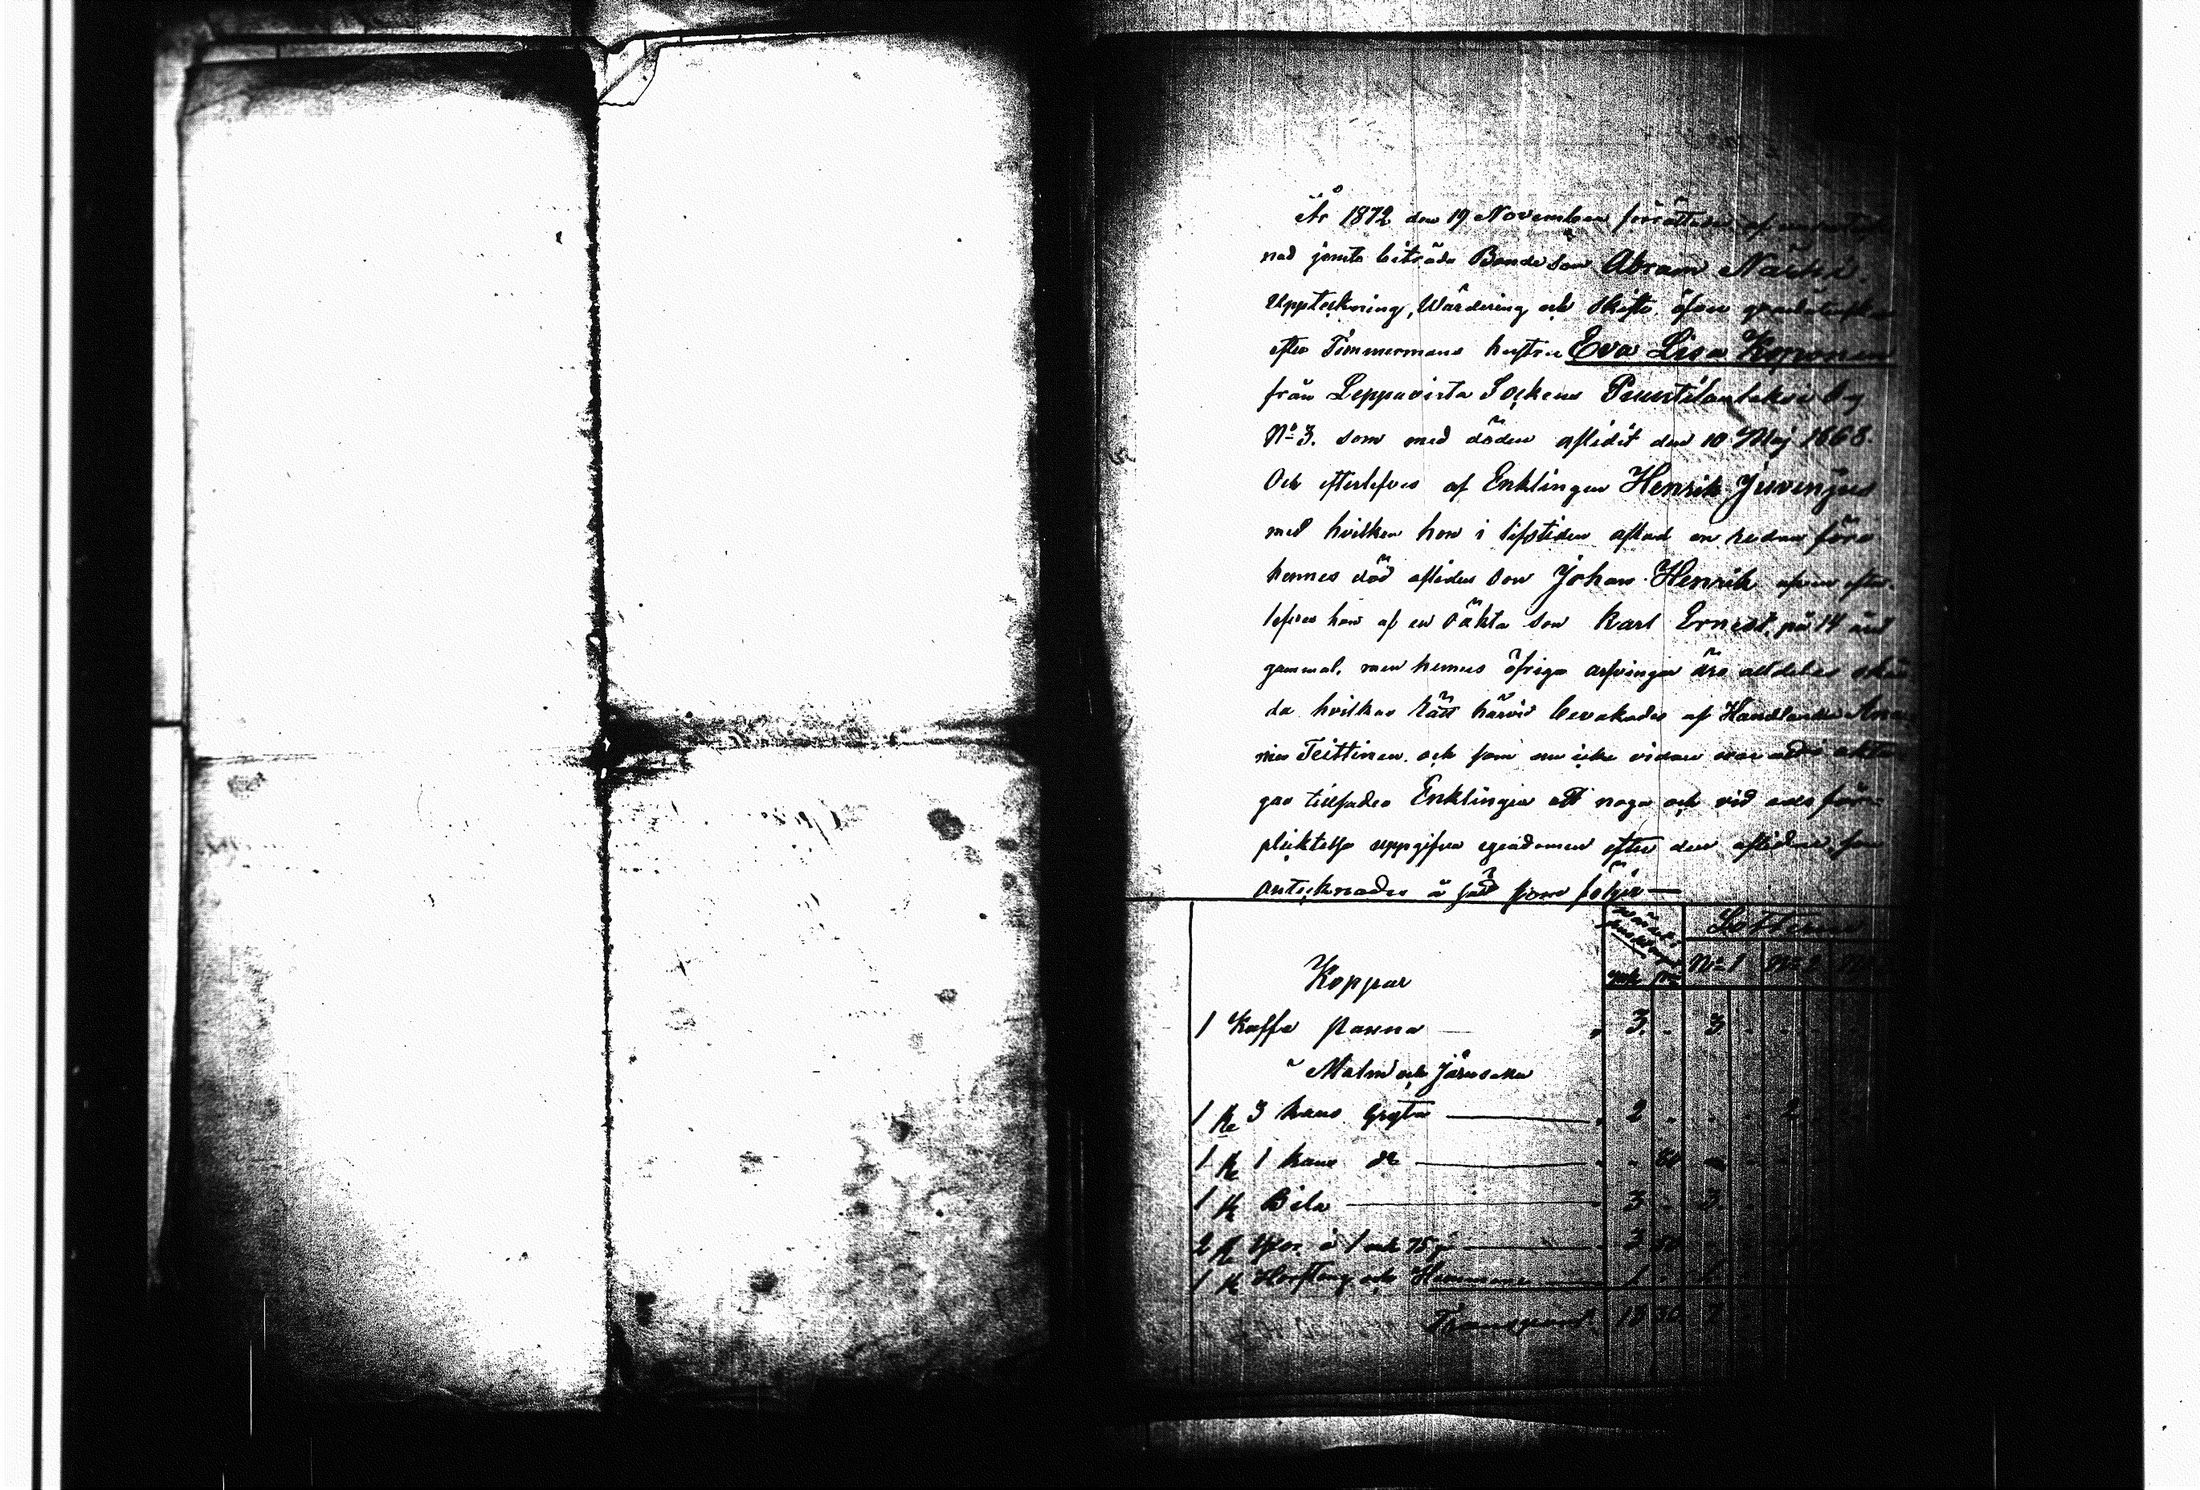 År 1872 den 19 November förrättades af underteck-
nad jemte biträde Bonde son Abram Närhi.
Uppteckning, Wärdering och skifte öfver qvarlåtenskapen
efter Timmermans hustru Eva Lisa Koponen
från Leppavirta Sockens Puutilanlaksi By
No 3. som med döden aflidit den 10 Maj 1868.
Och efterlefves af Enklingen Henrik Juvenjus
med hvilken hon i lifstiden aflad en redan före
hennes död afliden Son Johan Henrik äfven efter-
lefves hon af en oäkta Son Karl Ernest, på 14 året
gammal, men hennes öfriga arfvingar äro alldeles okän
da hvilkas rätt härvid bevakades af Handlanden
Teittinen, och som nu icke vidare var att iaktta
gas tillsades Enklingen att noga och vid eds för-
pliktelse uppgifva egendomen efter den aflidne, som
antecknades å sätt som följer —
Lotterne
No 1 No 2
Koppar
1 Kaffe panna — 3. - 3 - -
Malm och Järnsaker
1 K. 3 kans Gryta — 2 - - - 2
1 K 1 kans do — - 50
1 K Bila — 3 - 3.
2 K Yxor à 1 mk 75 p — 3 50
1 K Hoftång och Hammare — 1 -
Transport